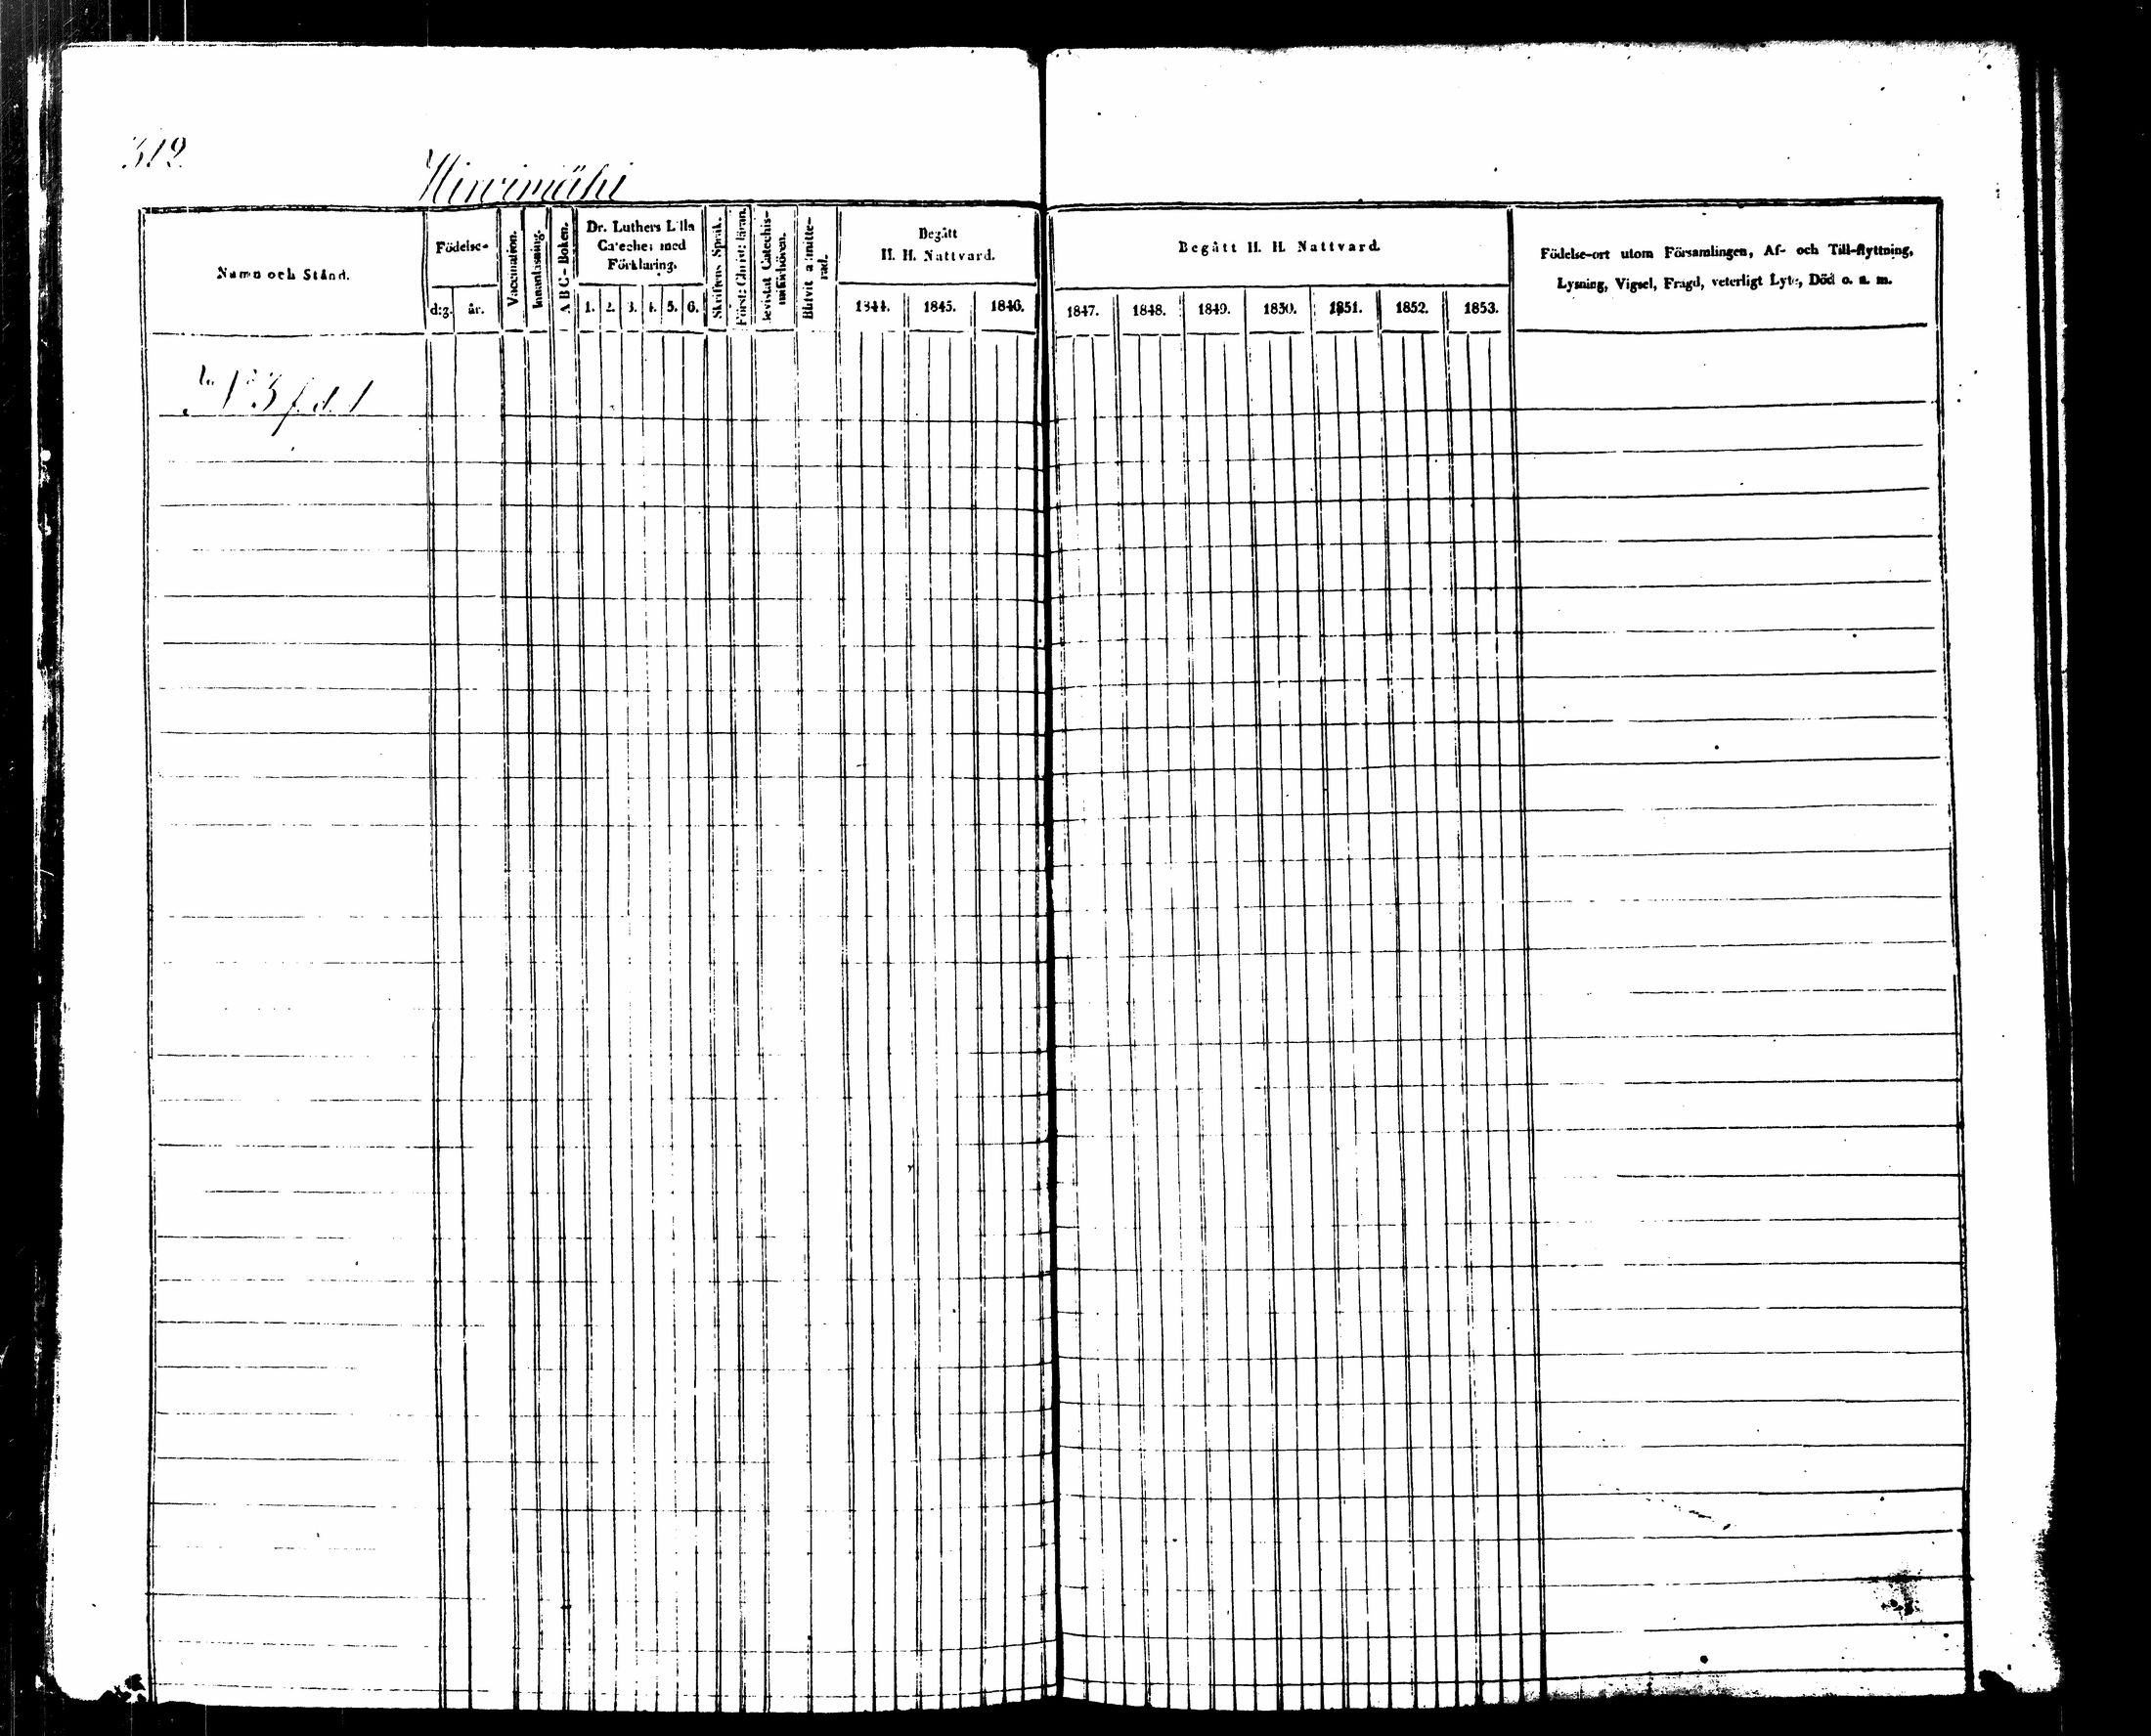 312
Hirvimähi
Namn och Stånd.
Födelse-
d:g.
år.
Vaccination.
Innanläsning.
A B C-Boken.
Dr. Luthers Lilla
Cateches med
Förklaring.
1. 2. 3. 4. 5. 6.
Skriftens Språk.
Först: Christ: läran.
Bevistat Catechis-
miförhören.
Blifvit admitte-
rad.
Begått
H. H. Nattvard.
1844. 1845. 1846.
Begått H. H. Nattvard.
1847. 1848. 1849. 1850. 1851. 1852. 1853.
Födelse-ort utom Församlingen, Af- och Till-flyttning,
Lysning, Vigsel, Frägd, veterligt Lyte, Död o. a. m.
N° 3 f. d. 1